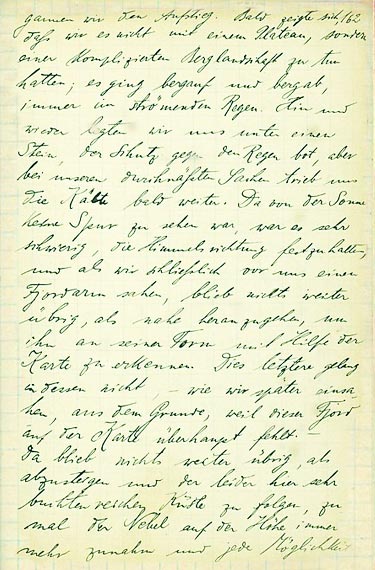 gannen wir den Aufstieg. Bald zeigte sich, /62
daß wir es nicht mit einem Plateau, sondern
einer komplizierten Berglandschaft zu tun
hatten; es ging bergauf und bergab,
immer im strömenden Regen. Hin und
wieder legten wir uns unter einen
Stein, der Schutz gegen den Regen bot, aber
bei unseren durchnäßten Sachen trieb uns
die Kälte bald weiter. Da von der Sonne
keine Spur zu sehen war, war es sehr
schwierig, die Himmelsrichtung festzuhalten,
und als wir schließlich vor uns einen
Fjordarm sahen, blieb nichts weiter
übrig, als nahe heranzugehen, um
ihn an seiner Form mit Hilfe der
Karte zu erkennen. Dies letztere gelang
indessen nicht – wie wir später einsa-
hen, aus dem Grunde, weil dieser Fjord
auf der Karte überhaupt fehlt. –
Da blieb nichts weiter übrig, als
abzusteigen und der leider hier sehr
buchtenreichen Küste zu folgen, zu
mal der Nebel auf der Höhe immer
mehr zunahm und jede Möglichkeit